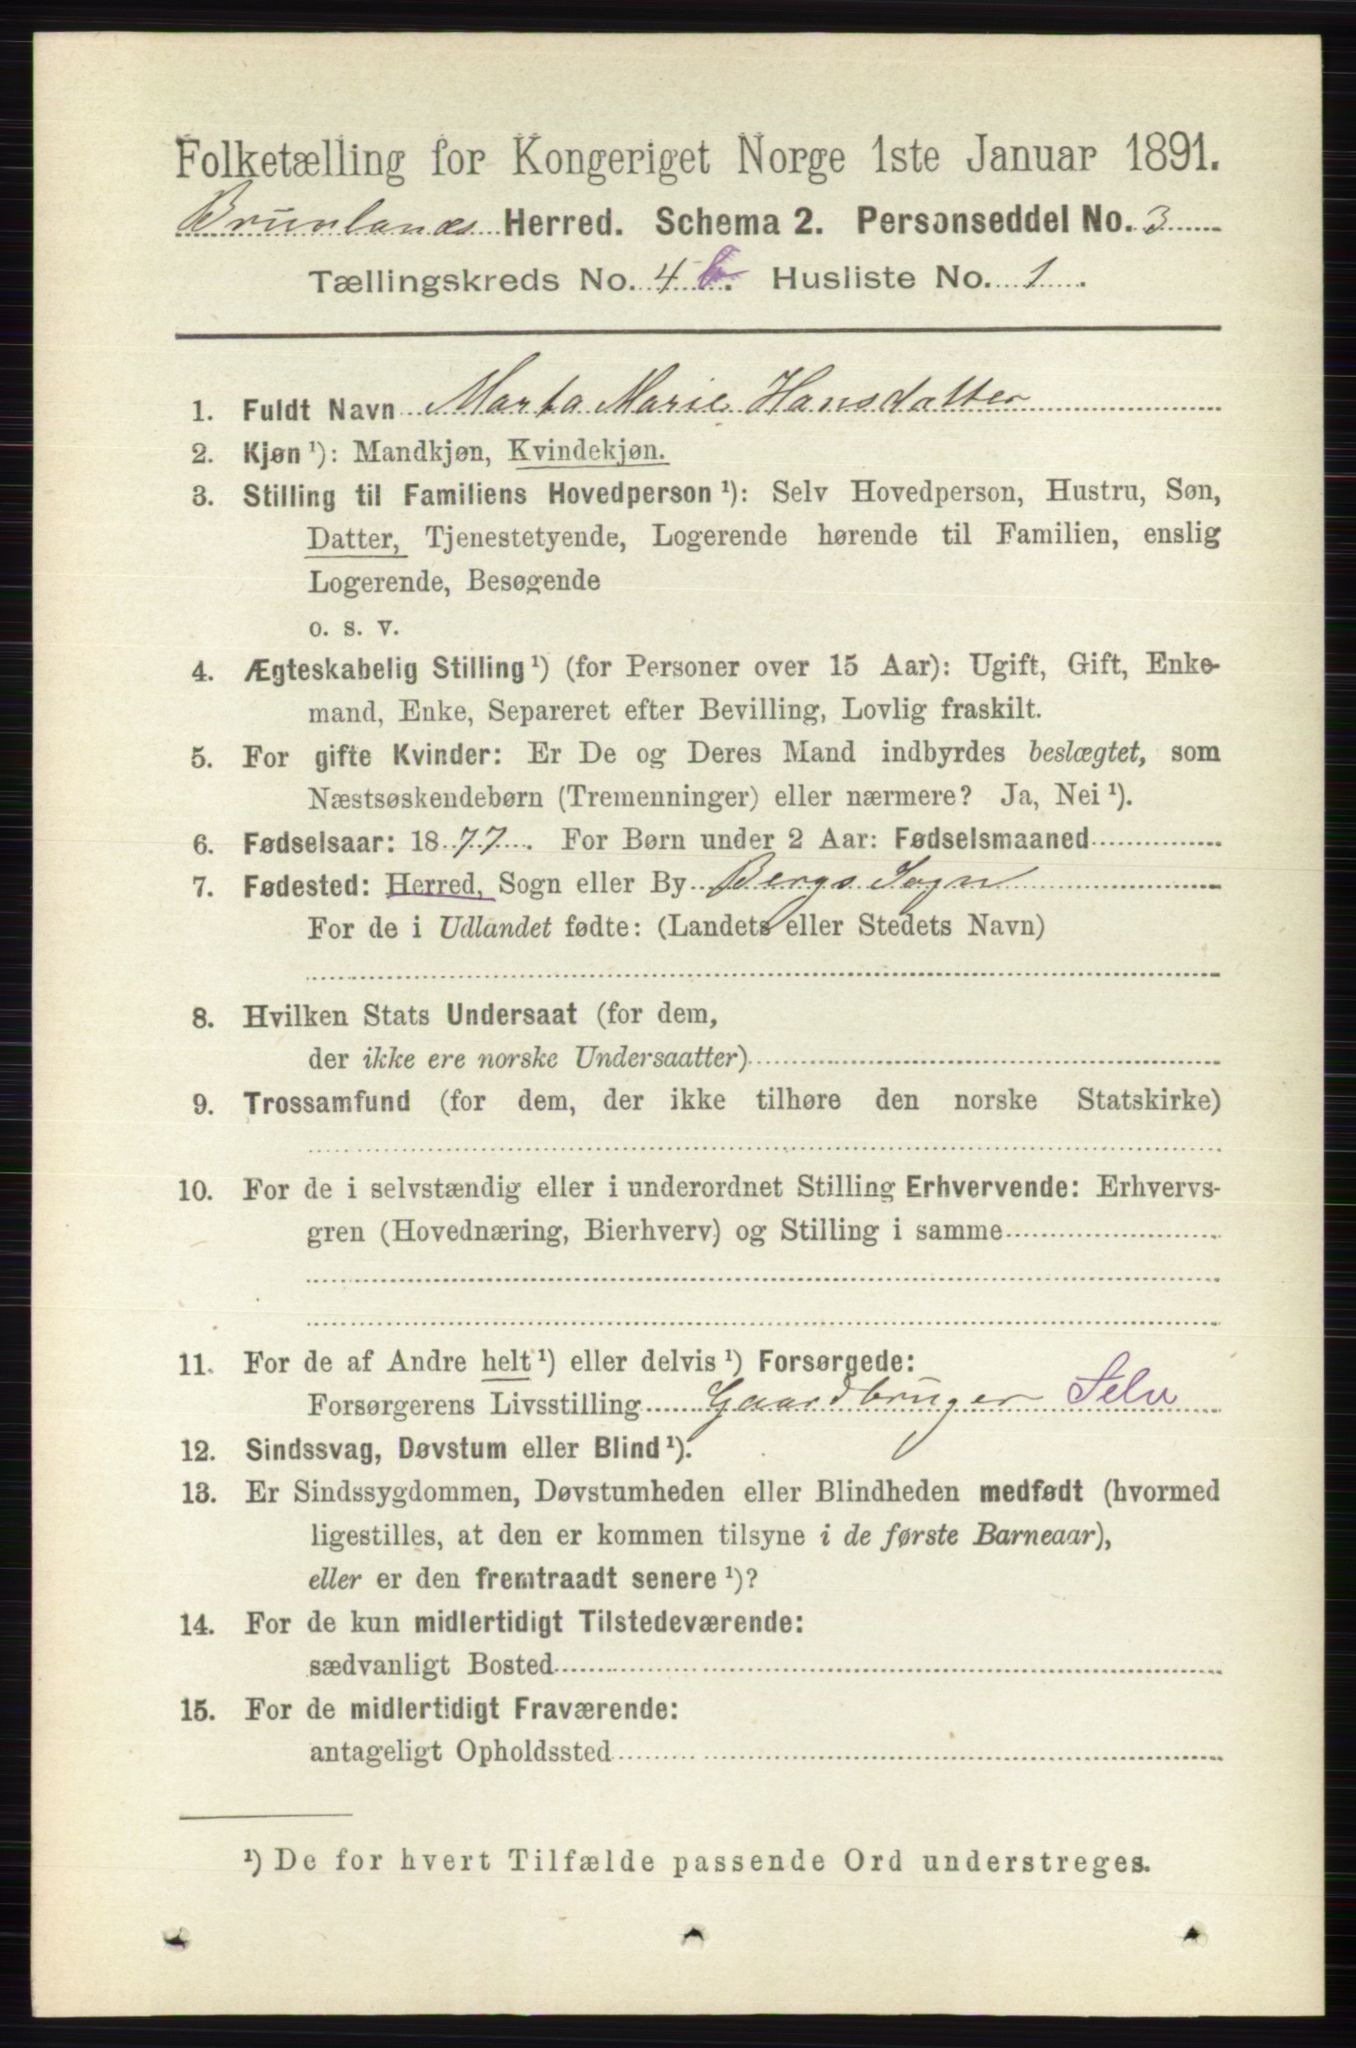 Folketælling for Kongeriget Norge 1ste Januar 1891.
Brunlanes Herred. Schema 2. Personseddel No. 3
Tællingskreds No. 4 b. Husliste No. 1.
1. Fuldt Navn Marta Marie Hansdatter
2. Kjøn ¹): Mandkjøn, Kvindekjøn.
3. Stilling til Familiens Hovedperson ¹): Selv Hovedperson, Hustru, Søn,
Datter, Tjenestetyende, Logerende hørende til Familien, enslig
Logerende, Besøgende
o. s. v.
4. Ægteskabelig Stilling ¹) (for Personer over 15 Aar): Ugift, Gift, Enke-
mand, Enke, Separeret efter Bevilling, Lovlig fraskilt.
5. For gifte Kvinder: Er De og Deres Mand indbyrdes beslægtet, som
Næstsøskendebørn (Tremenninger) eller nærmere? Ja, Nei ¹).
6. Fødselsaar: 1877. For Børn under 2 Aar: Fødselsmaaned
7. Fødested: Herred, Sogn eller By Bergs Sogn
For de i Udlandet fødte: (Landets eller Stedets Navn)
8. Hvilken Stats Undersaat (for dem,
der ikke ere norske Undersaatter)
9. Trossamfund (for dem, der ikke tilhøre den norske Statskirke)
10. For de i selvstændig eller i underordnet Stilling Erhvervende: Erhvervs-
gren (Hovednæring, Bierhverv) og Stilling i samme
11. For de af Andre helt ¹) eller delvis ¹) Forsørgede:
Forsørgerens Livsstilling Gaardbruger Selv
12. Sindssvag, Døvstum eller Blind ¹).
13. Er Sindssygdommen, Døvstumheden eller Blindheden medfødt (hvormed
ligestilles, at den er kommen tilsyne i de første Barneaar),
eller er den fremtraadt senere ¹)?
14. For de kun midlertidigt Tilstedeværende:
sædvanligt Bosted
15. For de midlertidigt Fraværende:
antageligt Opholdssted
¹) De for hvert Tilfælde passende Ord understreges.